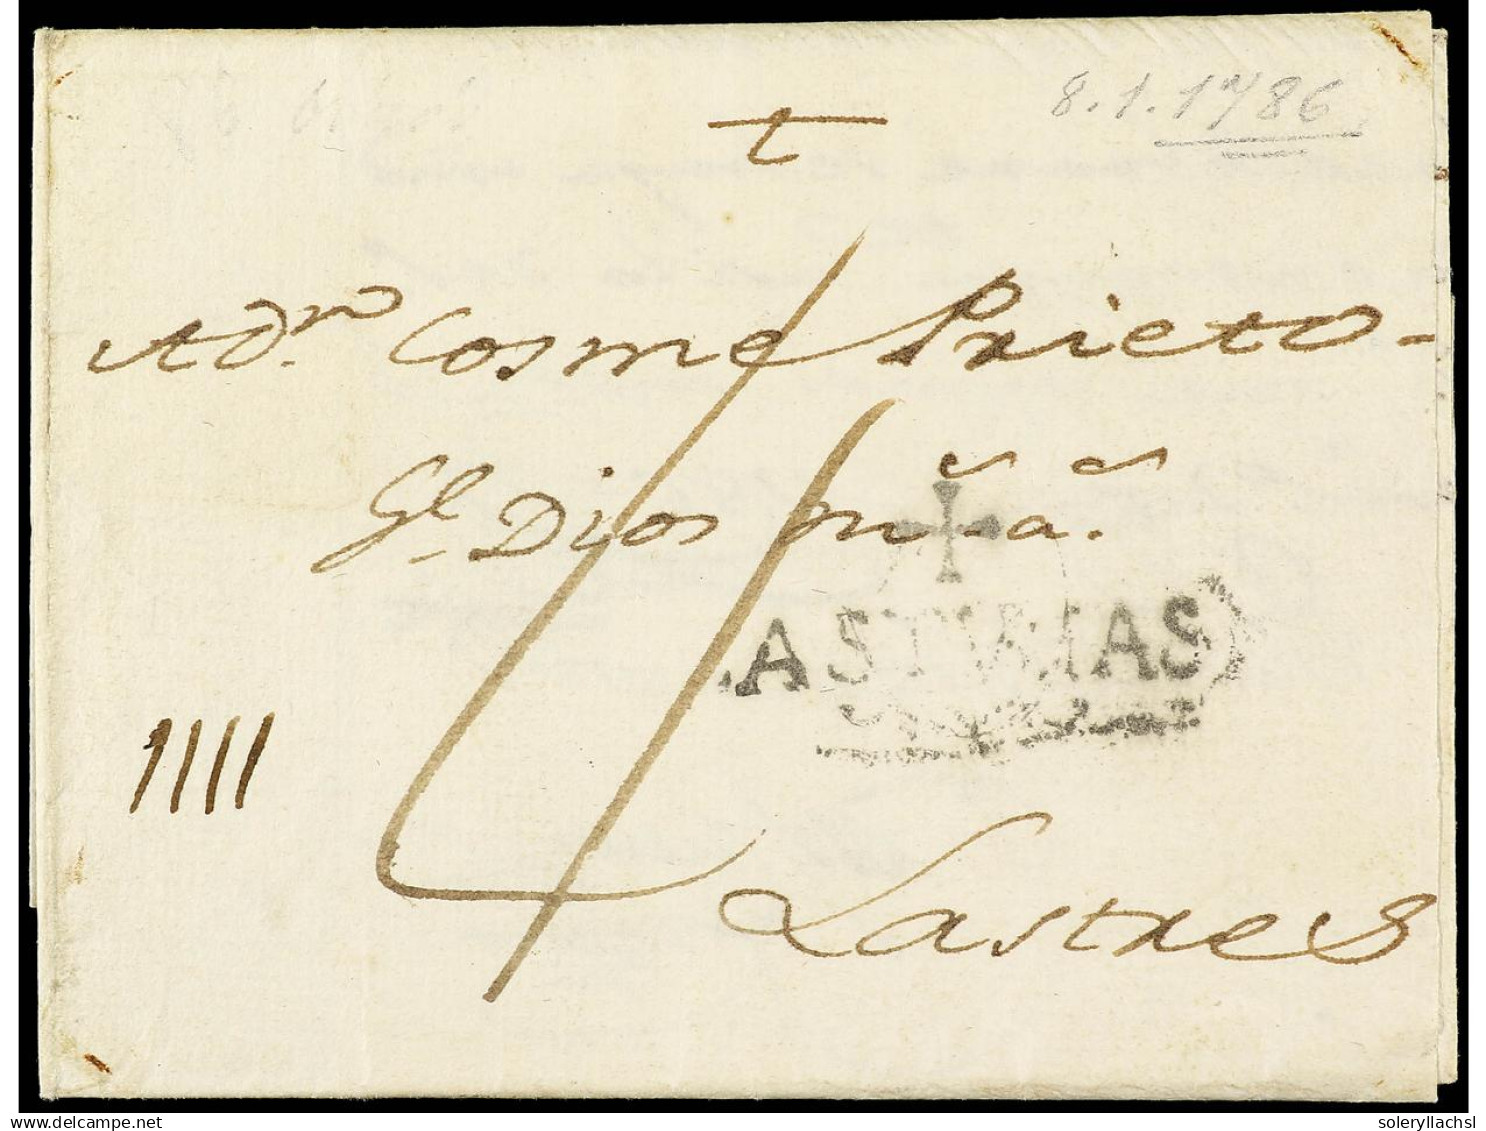 8.1.1786
t
A Dn. Cosme Prieto-
Gl. Dios ms. as.
ASTURIAS
4
1111
Lastres
soleryllachsl